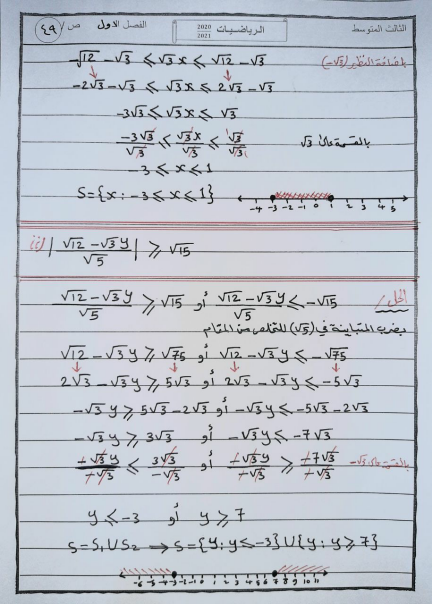 الثالث المتوسط
الرياضيات 2020 2021
الفصل الاول ص / ٤٩
-√12 - √3 ≤ √3 x ≤ √12 - √3 باضافة النظير (-√3)
-2√3 - √3 ≤ √3 x ≤ 2√3 - √3
-3√3 ≤ √3 x ≤ √3
-3√3/√3 ≤ √3 x/√3 ≤ √3/√3 بالقسمة على √3
-3 ≤ x ≤ 1
S={x: -3 ≤ x ≤ 1}
-4 -3 -2 -1 0 1 2 3 4 5
|(√12 - √3 y)/√5| ≥ √15
الحل /
(√12 - √3 y)/√5 ≥ √15 أو (√12 - √3 y)/√5 ≤ -√15
بضرب المتباينة في (√5) للتخلص من المقام
√12 - √3 y ≥ √75 أو √12 - √3 y ≤ -√75
2√3 - √3 y ≥ 5√3 أو 2√3 - √3 y ≤ -5√3
-√3 y ≥ 5√3 - 2√3 أو -√3 y ≤ -5√3 - 2√3
-√3 y ≥ 3√3 أو -√3 y ≤ -7√3
-√3 y/-√3 ≤ 3√3/-√3 أو -√3 y/-√3 ≥ -7√3/-√3 بالقسمة على -√3
y ≤ -3 أو y ≥ 7
S=S₁∪S₂ → S={y: y ≤ -3}∪{y: y ≥ 7}
-6 -5 -4 -3 -2 -1 0 1 2 3 4 5 6 7 8 9 10 11